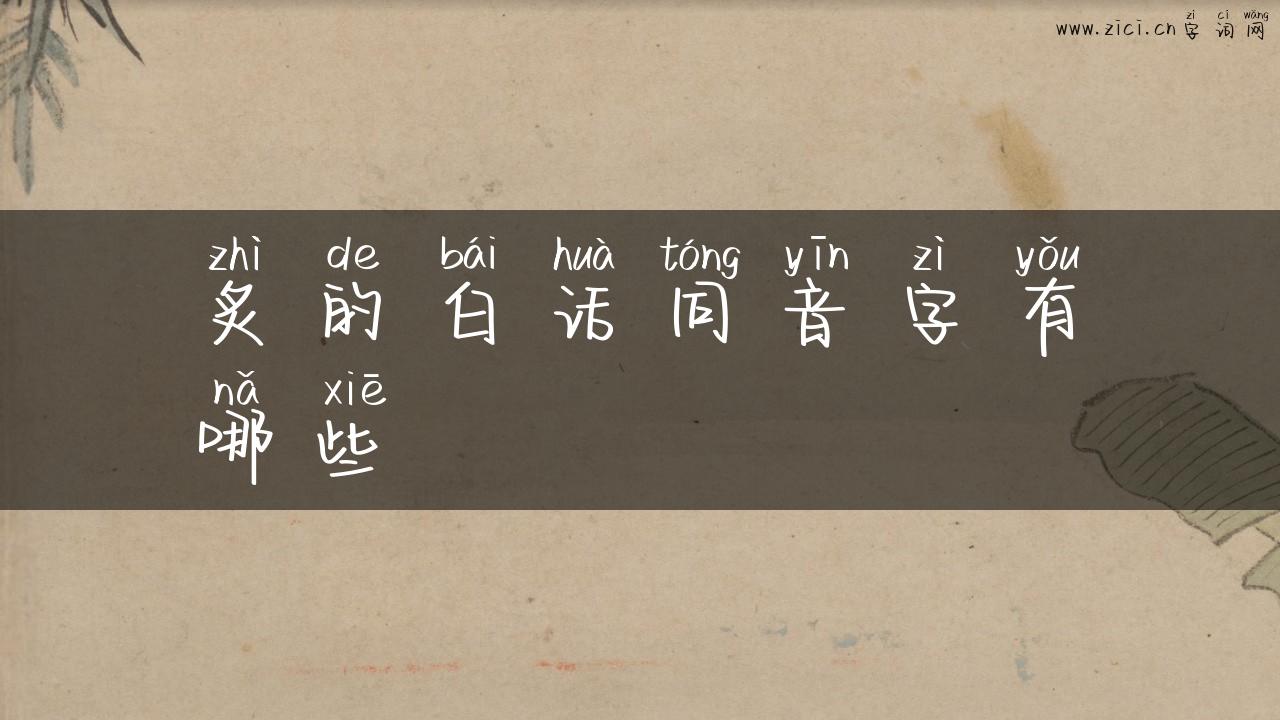 zì cí wǎng
www.zici.cn 字词网
zhì de bái huà tóng yīn zì yǒu
炙的白话同音字有
nǎ xiē
哪些